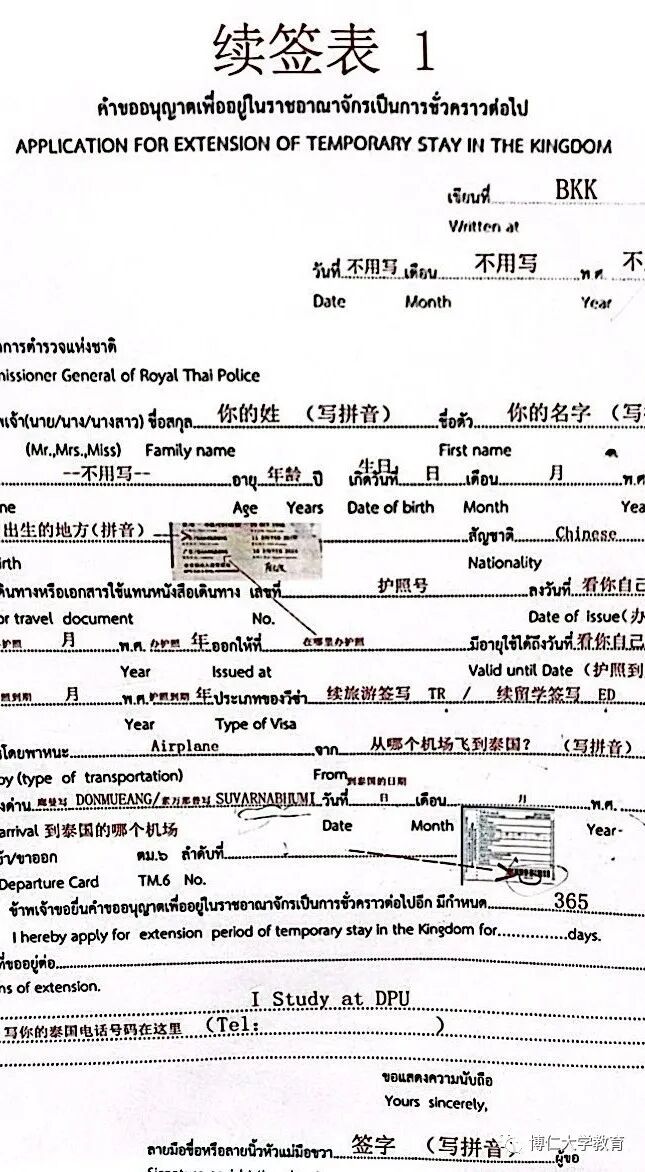 续签表 1
คำขออนุญาตเพื่ออยู่ในราชอาณาจักรเป็นการชั่วคราวต่อไป
APPLICATION FOR EXTENSION OF TEMPORARY STAY IN THE KINGDOM
เขียนที่ BKK
Written at
วันที่ 不用写 เดือน 不用写 พ.ศ. 不
Date Month Year
การตำรวจแห่งชาติ
missioner General of Royal Thai Police
พเจ้า(นาย/นาง/นางสาว) ชื่อสกุล 你的姓 (写拼音) ชื่อตัว 你的名字 (写
(Mr.,Mrs.,Miss) Family name First name
--不用写-- อายุ 年龄 ปี 生日 เกิดวันที่ 日 เดือน 月 พ.ศ.
ne Age Years Date of birth Month Yea
出生的地方(拼音) สัญชาติ Chinese
irth Nationality
ดินทางหรือเอกสารใช้แทนหนังสือเดินทาง เลขที่ 护照号 ลงวันที่ 看你自己
or travel document No. Date of Issue(办
办护照 月 พ.ศ. 办护照 年 ออกให้ที่ 在哪里办护照 มีอายุใช้ได้ถึงวันที่ 看你自己
Year Issued at Valid until Date (护照到
照到期 月 พ.ศ. 护照到期 年 ประเภทของวีซ่า 续旅游签写 TR / 续留学签写 ED
Year Type of Visa
โดยพาหนะ Airplane จาก 从哪个机场飞到泰国? (写拼音)
by (type of transportation) From 到泰国的日期
งด่าน 廊曼写 DONMUEANG/素万那普写 SUVARNABHUMI วันที่ 日 เดือน 月 พ.ศ.
arrival 到泰国的哪个机场 Date Month Year
ข้า/ขาออก ตม.๖ ลำดับที่
Departure Card TM.6 No.
ข้าพเจ้าขอยื่นคำขออนุญาตเพื่ออยู่ในราชอาณาจักรเป็นการชั่วคราวต่อไปอีก มีกำหนด 365
I hereby apply for extension period of temporary stay in the Kingdom for.............days.
ที่ขออยู่ต่อ
ns of extension.
I Study at DPU
写你的泰国电话号码在这里 (Tel: )
ขอแสดงความนับถือ
Yours sincerely,
ลายมือชื่อหรือลายนิ้วหัวแม่มือขวา 签字 (写拼音) ผู้ขอ
博仁大学教育